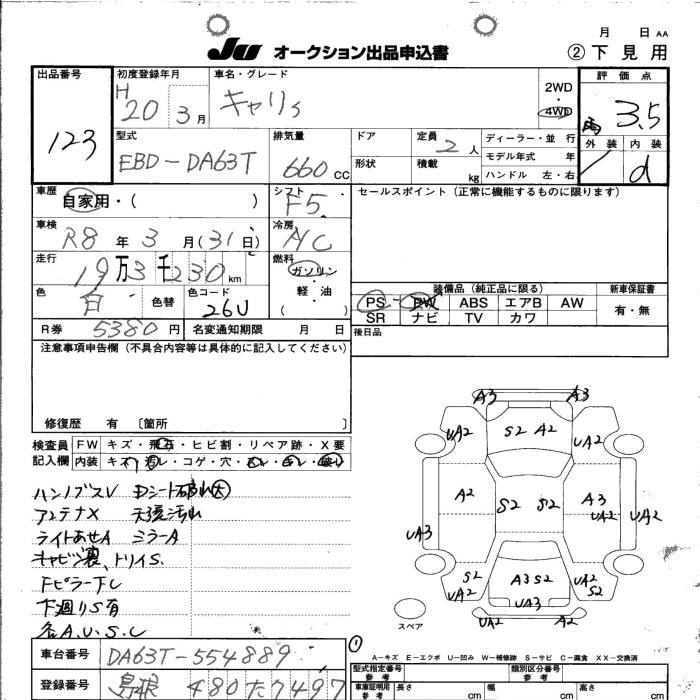 月 日 AA
JU オークション出品申込書
② 下見用
出品番号 123
初度登録年月 H 20 3月
車名・グレード キャリィ
2WD ・ 4WD
評価点 3.5
型式 EBD-DA63T
排気量 660cc
ドア
形状
定員 2人
積載 kg
ディーラー・並 行
モデル年式 年
ハンドル 左・右
外装 内装 d
車歴 自家用・( )
シフト F5
セールスポイント (正常に機能するものに限ります)
車検 R8年3月(31日)
冷房 A/C
走行 19万3千230km
燃料 ガソリン・軽・油 ( )
色 白 色替 色コード 26U
装備品 (純正品に限る) 新車保証書
PS PW ABS エアB AW 有・無
SR ナビ TV カワ
R券 5380円 名変通知期限 月 日
後日品
注意事項申告欄 (不具合内容等は具体的に記入してください)
修復歴 有 〔箇所 〕
検査員 FW キズ・飛石・ヒビ割・リペア跡・X要
記入欄 内装 キズ・汚レ・コゲ・穴・
ハンドブスレ Dシート破れ大
アンテナX 天張汚れ
ライトあせA ミラーA
キャビン裏、トリイS.
FピラーTC
下廻りS有
各A.U.S.C
A3 A3
UA2 S2 A2 UA2
A2 S2 S2 A3 UA2
UA3 UA2
S2 UA2 A3 S2 UA2 S2
UA3
UA2 A2
スペア
①
A－キズ E－エクボ U－凹み W－補修跡 S－サビ C－腐食 XX－交換済
車台番号 DA63T-554889
型式指定番号 参考 類別区分番号 参考
登録番号 島根 480 た 7497
車庫証明用 参考 長さ cm 幅 cm 高さ cm